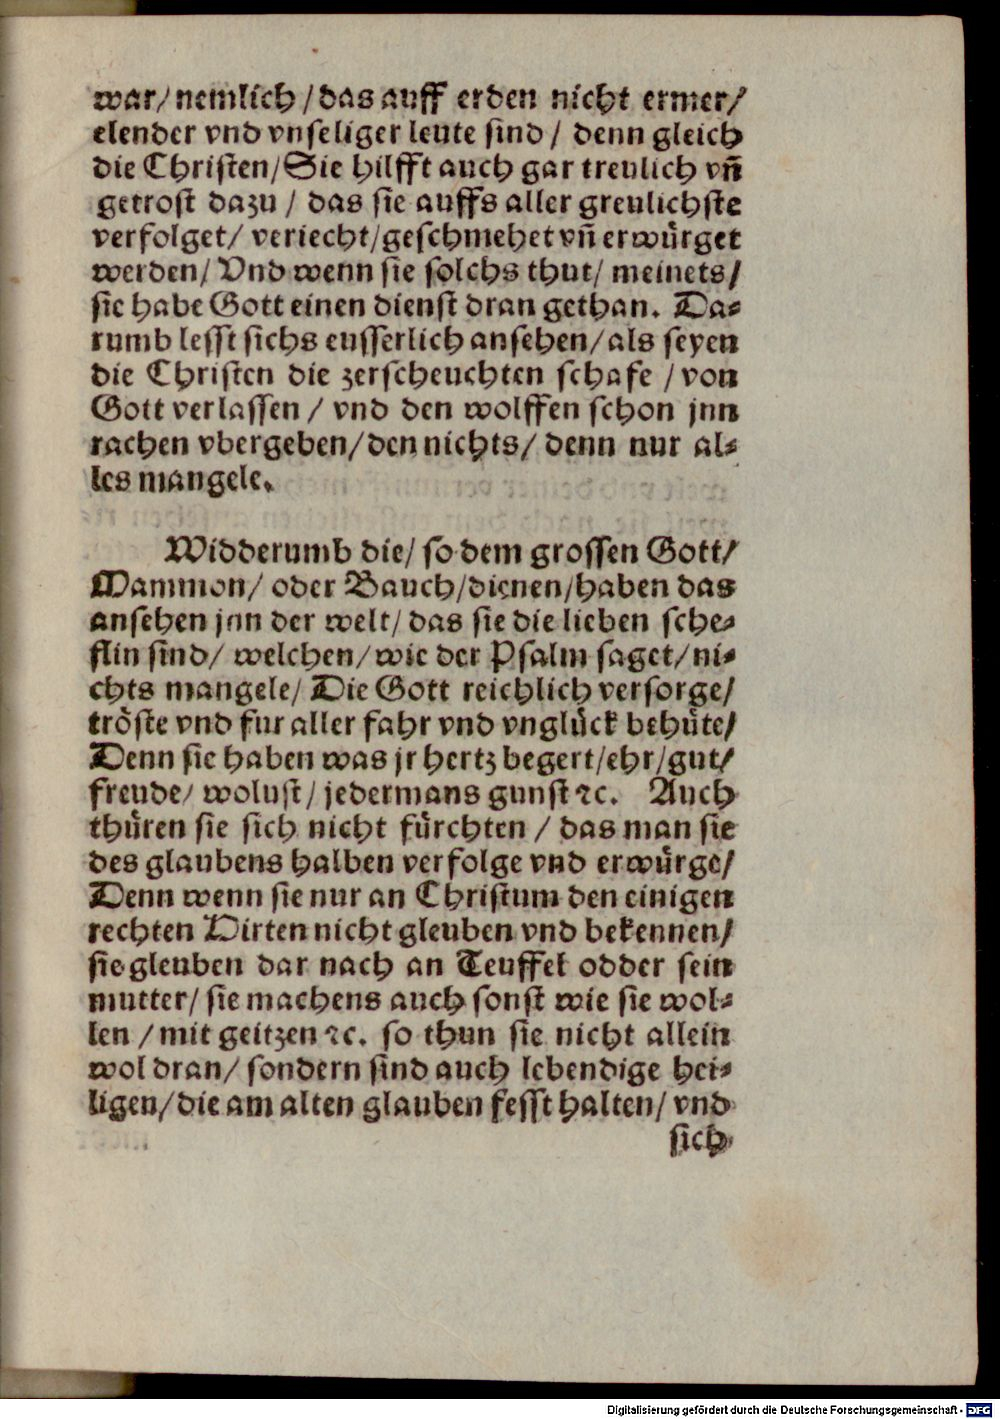 war/ nemlich /das auff erden nicht ermer/
elender vnd vnseliger leute sind / denn gleich
die Christen/Sie hilfft auch gar treulich vñ
getrost dazu / das sie auffs aller greulichste
verfolget/ veriecht/geschmehet vñ erwuͤrget
werden/ Vnd wenn sie solchs thut/ meinets/
sie habe Gott einen dienst dran gethan. Da⸗
rumb lesst sichs eusserlich ansehen/als seyen
die Christen die zerscheuchten schafe / von
Gott verlassen / vnd den wolffen schon jnn
rachen vbergeben/den nichts/ denn nur al⸗
les mangele.
Widderumb die/ so dem grossen Gott/
Mammon/ oder Bauch/dienen/haben das
ansehen jnn der welt/ das sie die lieben sche⸗
flin sind/ welchen/ wie der Psalm saget/ ni⸗
chts mangele/ Die Gott reichlich versorge/
troͤste vnd fur aller fahr vnd vngluͤck behuͤte/
Denn sie haben was jr hertz begert/ehr/gut/
freude/ wolust/ jedermans gunst ⁊c. Auch
thuͤren sie sich nicht fuͤrchten / das man sie
des glaubens halben verfolge vnd erwuͤrge/
Denn wenn sie nur an Christum den einigen
rechten Hirten nicht gleuben vnd bekennen/
sie gleuben dar nach an Teuffel odder sein
mutter/ sie machens auch sonst wie sie wol⸗
len /mit geitzen ⁊c. so thun sie nicht allein
wol dran/ sondern sind auch lebendige hei⸗
ligen/die am alten glauben fesst halten/ vnd
sich
Digitalisierung gefördert durch die Deutsche Forschungsgemeinschaft - DFG